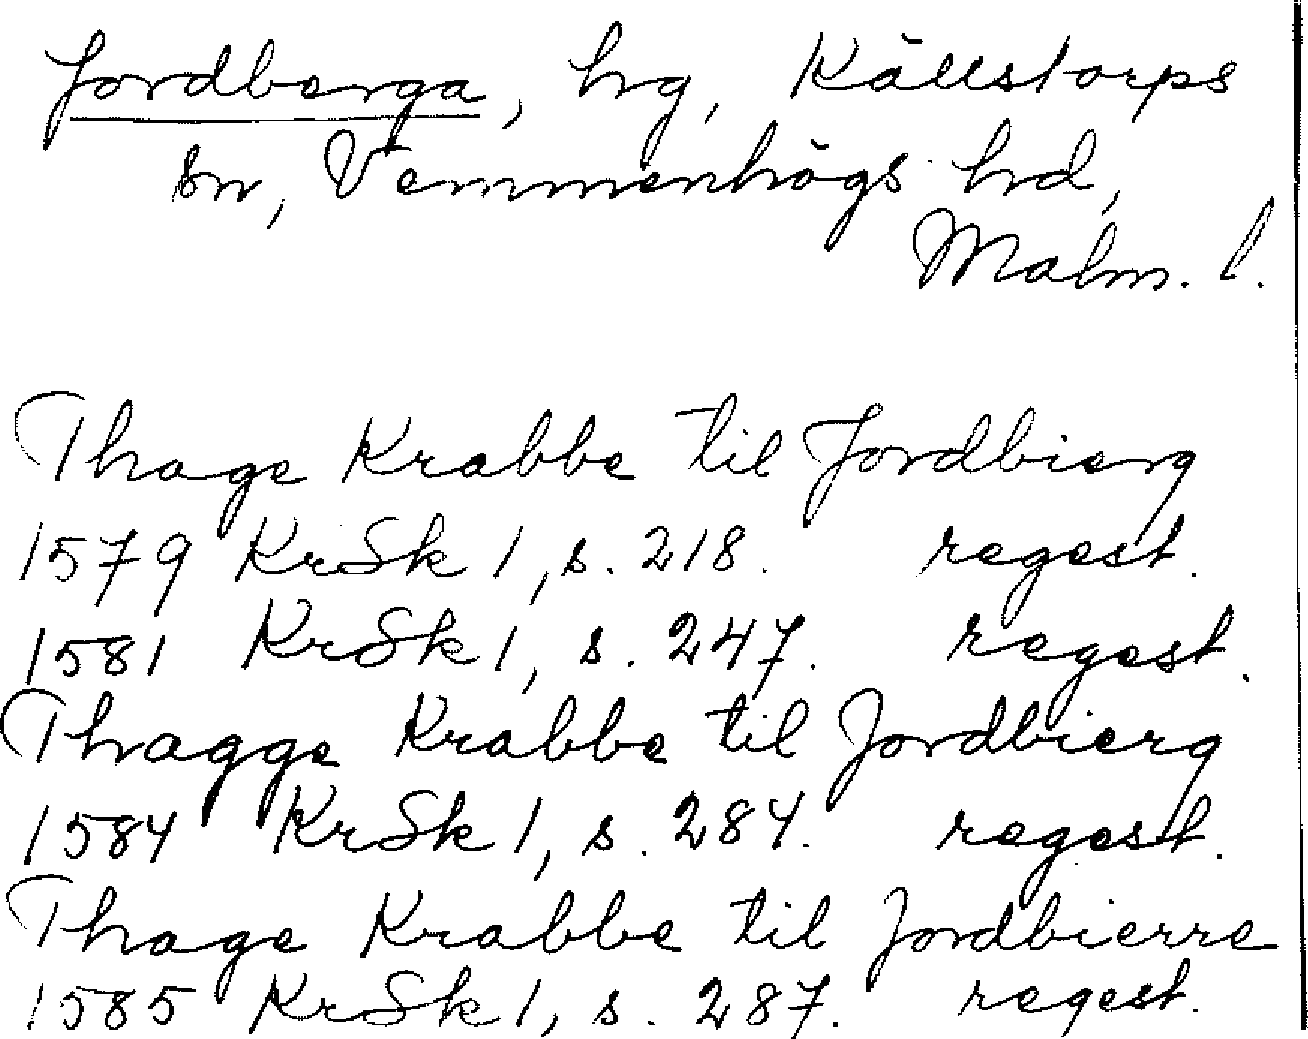 Jordberga, hrg, Källstorps
sn, Vemmenhögs hd,
Malm. l.
Thage Krabbe til Jordbierg
1579 KrSk 1, s. 218. regest.
1581 KrSk 1, s. 247. regest.
Thagge Krabbe til Jordbierg
1584 KrSk 1, s. 284. regest.
Thage Krabbe til Jordbierre
1585 KrSk 1, s. 287. regest.